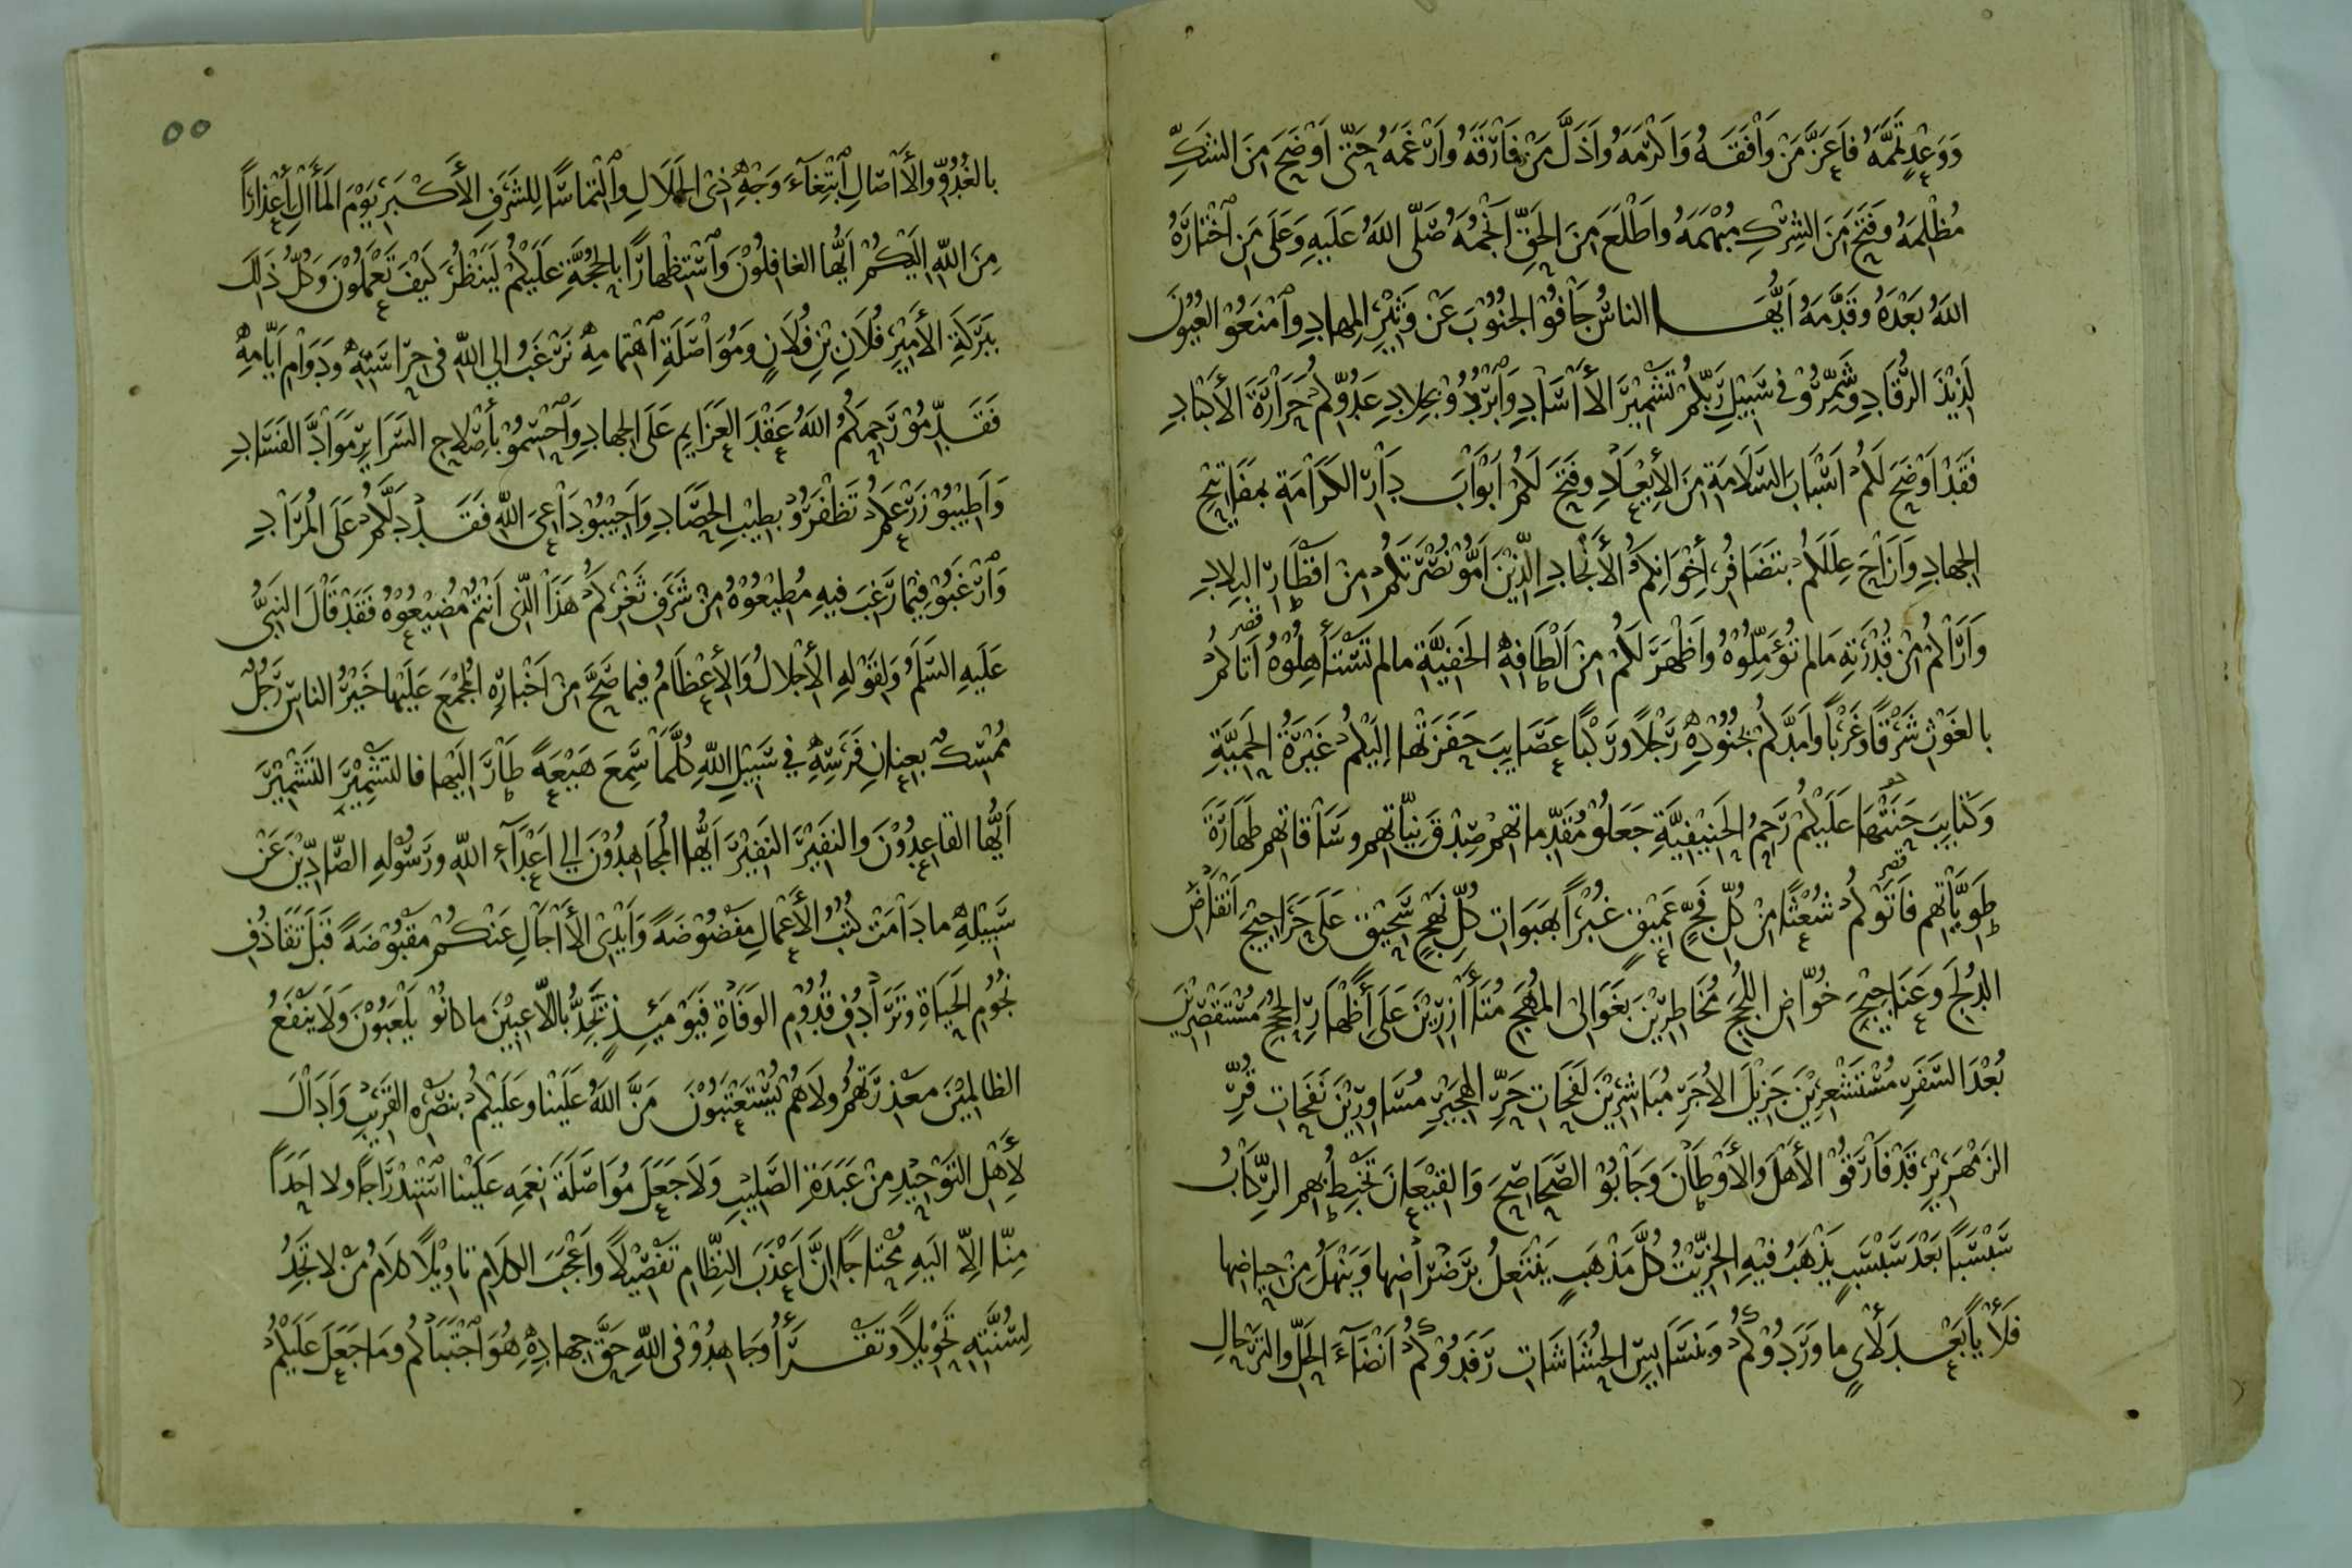 وَوَعْدٍ تَمَّمَهُ فَاَعَزَّ مَنْ وَاَفَقَهُ وَاَكْرَمَهُ وَاَذَلَّ مَنْ فَارَقَهُ وَاَرْغَمَهُ حَتّى اَوْضَحَ مِنَ الشَكِّ
مُظْلِمَهُ وَفَتَحَ مِنَ الشِرْكِ مُبْهَمَهُ واَطْلَعَ مِنَ الحَقِّ اَنْجُمَهُ صَلّى اللهُ عَلَيهِ وَعَلَى مَنِ اخْتَارَهُ
اللهُ بَعْدَهُ وَقَدَّمَهُ اَيُّهَا الناسُ جَافُوْا الجُنُوْبَ عَنْ وَثِيْرِ المِهادِ وامْنَعُوْا العُيُوْنَ
لَذِيْذَ الرُّقَادِ وشَمِّرُوْا في سَبِيْلِ رَبِّكُمْ تَشْمِيْرَ الأسَادِ وَابْرُدُوْا بِجِلادِ عَدُوِّكُمْ حَرَارَةَ الأَكْبَادِ
فَقَدْ اَوْضَحَ لَكُمْ اَسْبَابَ السَّلَامَةِ مِنَ الإِبْعَادِ وفَتَحَ لَكُمْ اَبْوَابَ دَارِ الكَرَامَةِ بِمَفَاتِيْحِ
الجِهادِ وَاَزَاحَ عِلَلَكُمْ بِتَضَافُرِ اِخْوَانِكُمُ الأَنْجَادِ الَّذِيْنَ اَمُّوْا نُصْرَتَكُمْ مِنْ اَقْطَارِ البِلادِ
وَاَرَاكُمْ مِنْ قُدْرَتِهِ مَا لم تُؤَمِّلُوْهُ وَاَظْهَرَ لَكُمْ مِنْ اَلْطَافِهِ الخَفِيَّةِ مالم تَسْتَأْهِلُوْهُ اَتَاكُمْ
بالغَوْثِ شَرْقًا وَغَرْبًا وَاَمَدَّكُمْ بِجُنُوْدِهِ رَجْلًا وَرَكْبًا عَصَايِبَ حَفَزَتْهَا اِلَيْكُمْ غَيْرَةُ الحَمِيَّةِ
وَكَتَايِبَ حَنَتْهَا عَلَيْكُمْ رَحِمُ الحَنِيْفِيَّةِ جَعَلُوْا مُقَدِّماتِهِمْ صِدْقَ نِيّاتِهِمْ وسَاقاتِهم طَهَارَةَ
طَوِيَّاتِهم فَاَتَوْكُمْ شُعْثًا مِنْ كُلِّ فَجٍّ عَمِيْقٍ غُبْرًا بِهَبَوَاتِ كُلِّ نَهْجٍ سَحِيْقٍ عَلَى حَرَاجِيْجَ اَنْقَاضِ
الدُلَجِ وَعَنَاجِيْجَ خُوّاضِ اللُجَجِ مُخَاطِرِيْنَ بِغَوَالي المُهَجِ مُتَأَازِرِيْنَ عَلَى اِظْهَارِ الحُجَجِ مُسْتَقْصِرِيْنَ
بُعْدَ السَفَرِ مُسْتَشْعِرِيْنَ جَزِيْلَ الاُجَرِ مُبَاشِرِيْنَ لَفَحَاتِ حَرِّ الهَجِيْرِ مُسَاوِرِيْنَ نَفَحَاتِ قُرِّ
الزَمْهَرِيْرِ قَدْ فَارَقُوْا الأَهْلَ وَالأَوْطَانَ وَجَابُوْا الصَّحَاصِحَ وَالقِيْعَانَ تَخْبِطُ بِهِم الرِّكَابُ
سَبْسَبًا بَعْدَ سَبْسَبٍ يَذْهَبُ فِيْهِ الخِرِّيْتُ كُلَّ مَذْهَبٍ يَنْتَعِلُ بِرَضْرَاضِها وَيَنْهَلُ مِنْ حِياضِها
فَلَأْيًا بَعْدَ لَأْيٍ ما وَرَدُوْكُمْ وَبِنَسَايِسِ الحُشَاشَاتِ رَفَدُوْكُمْ اَنْضَآءَ الحِلِّ والتَرْحَالِ
٥٥
بالغُدُوِّ والأَاصَالِ ابْتِغَآءَ وَجْهِ ذِي الجَلَالِ والْتِمَاسًا لِلشَرَفِ الأَكْبَرِ يَوْمَ المَأَالِ اِعْذَارًا
مِنَ اللّهِ اِلَيْكُمْ اَيُّها الغافِلُوْنَ وَاسْتِظْهارًا بِالحُجَّةِ عَلَيْكُمْ لِيَنْظُرَ كَيْفَ تَعْمَلُوْنَ وَكُلُّ ذَلِكَ
بِبَرَكَةِ الأَمِيْرِ فُلَانِ بْنِ فُلَانٍ وَمُوَاصَلَةِ اهْتِمامِهِ نَرْغَبُ اِلي اللّهِ في حِرَاسَتِهِ وَدَوَامِ اَيّامِهِ
فَقَدِّمُوْا رَحِمَكُمُ اللهُ عَقْدَ العَزَايِمِ عَلَى الجِهادِ وَاحْسِمُوْا بِاِصْلاحِ السَرَايِرِ مَوَادَّ الفَسَادِ
وَاَطِيْبُوْا زَرْعَكُمْ تَظْفَرُوْا بِطِيْبِ الحَصَادِ وَاَجِيْبُوْا دَاعِيَ اللّهِ فَقَدْ دَلَّكُمْ عَلَى المُرَادِ
وَارْغَبُوْا فِيْمَا رَغِبَ فِيهِ مُطِيْعُوْهُ مِنْ شَرَفِ ثَغْرِكُمْ هَذَا الَّذِي اَنْتُمْ مُضِيْعُوْهُ فَقَدْ قَالَ النَبِيُّ
عَلَيهِ السَّلَمُ وَلِقَوْلِهِ الأِجْلالُ وَالأِعْظَامُ فِيما صَحَّ مِنْ اَخْبَارِهِ المُجْمَعِ عَلَيْها خَيْرُ الناسِ رَجُلٌ
مُمْسِكٌ بِعِنانِ فَرَسِهِ فِي سَبِيْلِ اللّهِ كُلَّمَا سَمِعَ هَيْعَةً طَارَ اِلَيْها فالتَشْمِيْرَ التَشْمِيْرَ
اَيُّها القَاعِدُوْنَ والنَفِيْرَ النَفِيْرَ اَيُّها المُجَاهِدُوْنَ اِلى اَعْدَآءِ اللّهِ ورَسُوْلِهِ الصَّادِّيْنَ عَنْ
سَبِيْلِهِ ما دَامَتْ كُتُبُ الأَعْمالِ مَفْضُوْضَةً وَاَيْدِي الأَاجَالِ عَنْكُمْ مَقْبُوْضَةً قَبْلَ تَقَاذُفِ
نُجُوْمِ الحَيَاةِ وتَرَادُفِ قُدُوْمِ الوَفَاةِ فَيَوْمَئِذٍ تَجِدُّ بِاللّاعِبِيْنَ ما كانُوْا يَلْعَبُوْنَ وَلَا يَنْفَعُ
الظالِمِيْنَ مَعْذِرَتُهُمْ ولَا هُمْ يُسْتَعْتَبُوْنَ مَنَّ اللهُ عَلَيْنا وعَلَيْكُمْ بِنَصْرِهِ القَرِيْبِ وَاَدَالَ
لِأَهْلِ التَوْحِيْدِ مِنْ عَبَدَةِ الصَّلِيْبِ وَلَا جَعَلَ مُوَاصَلَةَ نِعَمِهِ عَلَيْنا اسْتِدْرَاجًا ولا اَحَدًا
مِنّا اِلّا اليْهِ مُحْتاجًا اِنَّ اَعْذَبَ النِّظَامِ تَفْصِيْلًا وَاَعْجَبَ الكَلامِ تاوِيْلًا كَلَامُ مَنْ لا تَجِدُ
لِسُنَّتِهِ تَحْوِيْلًا وَتَقْرَأُ وَجَاهِدُوْا فِي اللّهِ حَقَّ جِهادِهِ هُوَ اجْتَبَاكُمْ وَمَا جَعَلَ عَلَيْكُمْ